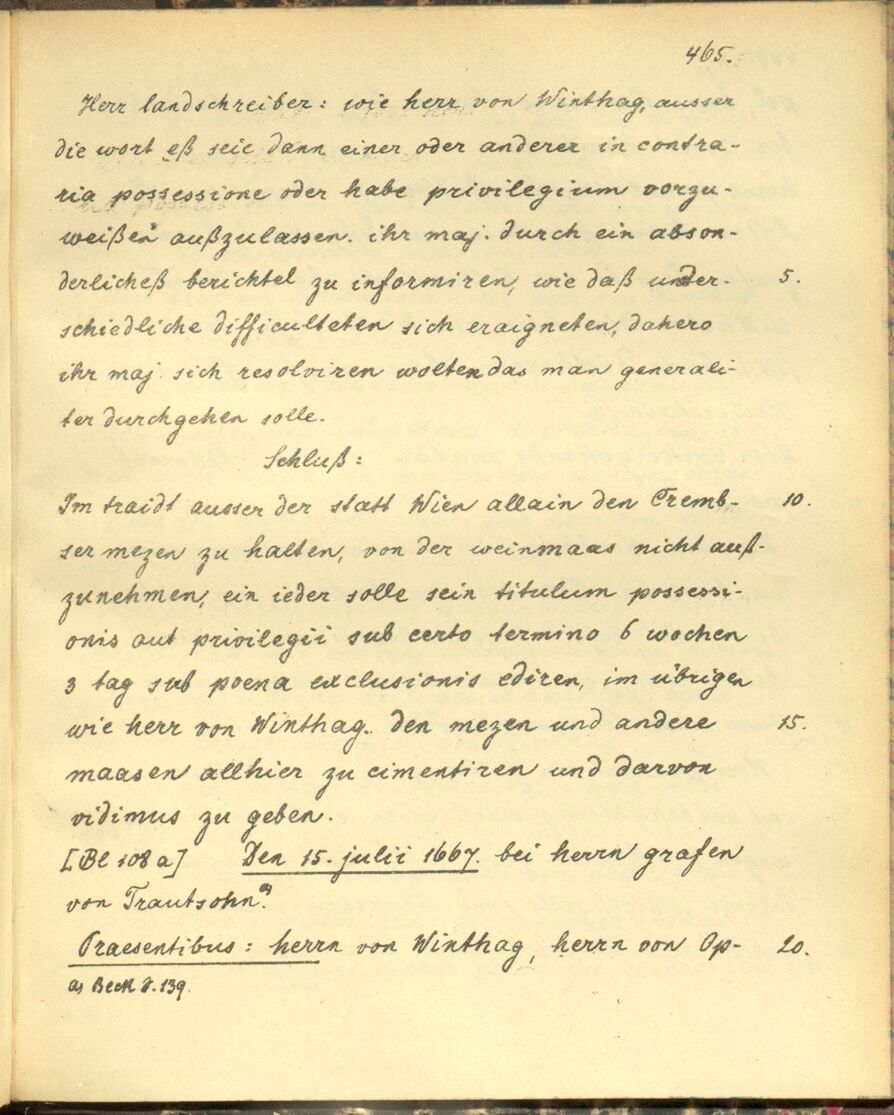 465.
Herr landschreiber: wie herr von Winthag, ausser
die wort eß seie dann einer oder anderer in contra-
ria possessione oder habe privilegium vorzu-
weißen außzulassen. ihr maj. durch ein abson-
derlicheß berichtel zu informiren, wie daß under- 5.
schiedliche difficulteten sich eraigneten, dahero
ihr maj. sich resolviren wolten das man generali-
ter durchgehen solle.
Schluß:
Im traidt ausser der statt Wien allain den Cremb- 10.
ser mezen zu halten, von der weinmaas nicht auß-
zunehmen, ein ieder solle sein titulum possessi-
onis aut privilegii sub certo termino 6 wochen
3 tag sub poena exclusionis ediren, im übrigen
wie herr von Winthag. den mezen und andere 15.
maasen allhier zu cimentiren und darvon
vidimus zu geben.
[Bl 108 a] Den 15. julii 1667. bei herrn grafen
von Trautsohn. a)
Praesentibus: herrn von Winthag, herrn von Op- 20.
a) Beck S. 139.